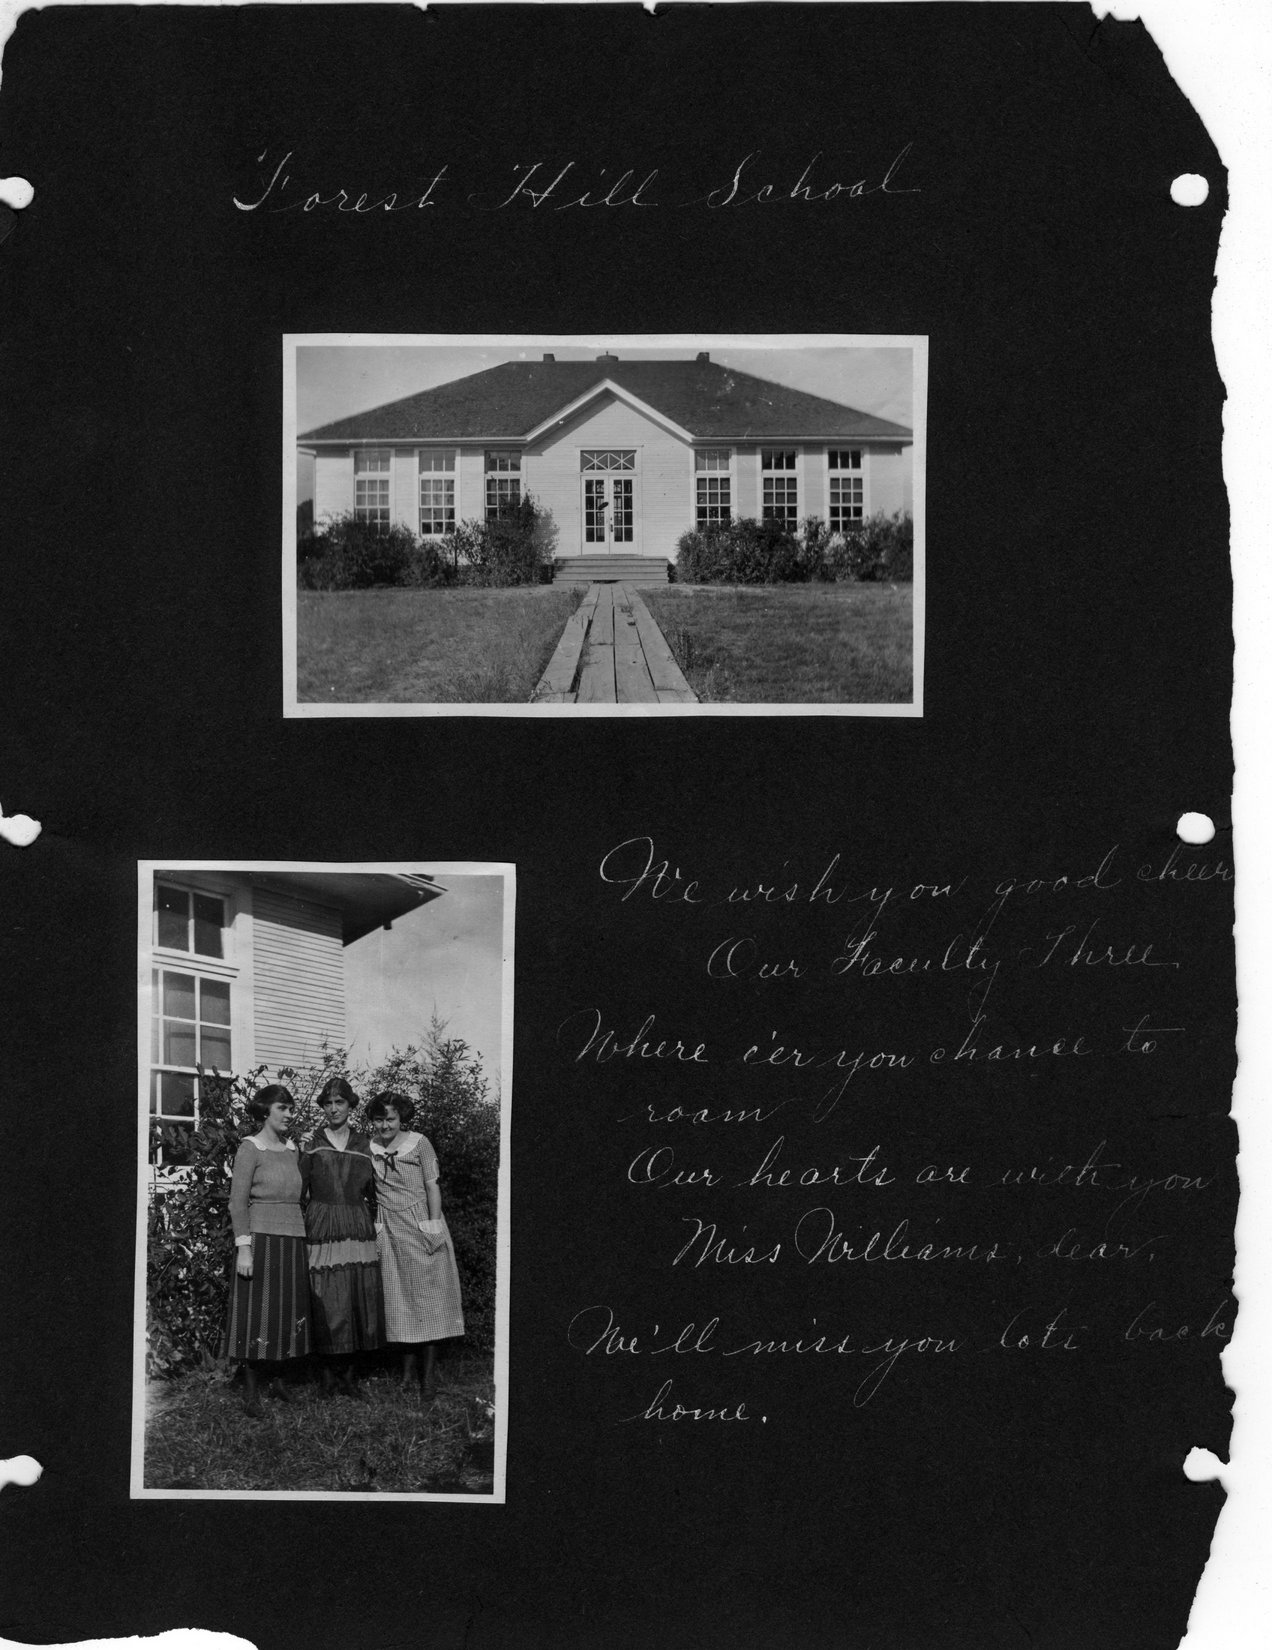 Forest Hill School
We wish you good cheer
Our Faculty Three
Where e'er you chance to
roam
Our hearts are with you
Miss Williams, dear,
We'll miss you lots back
home.